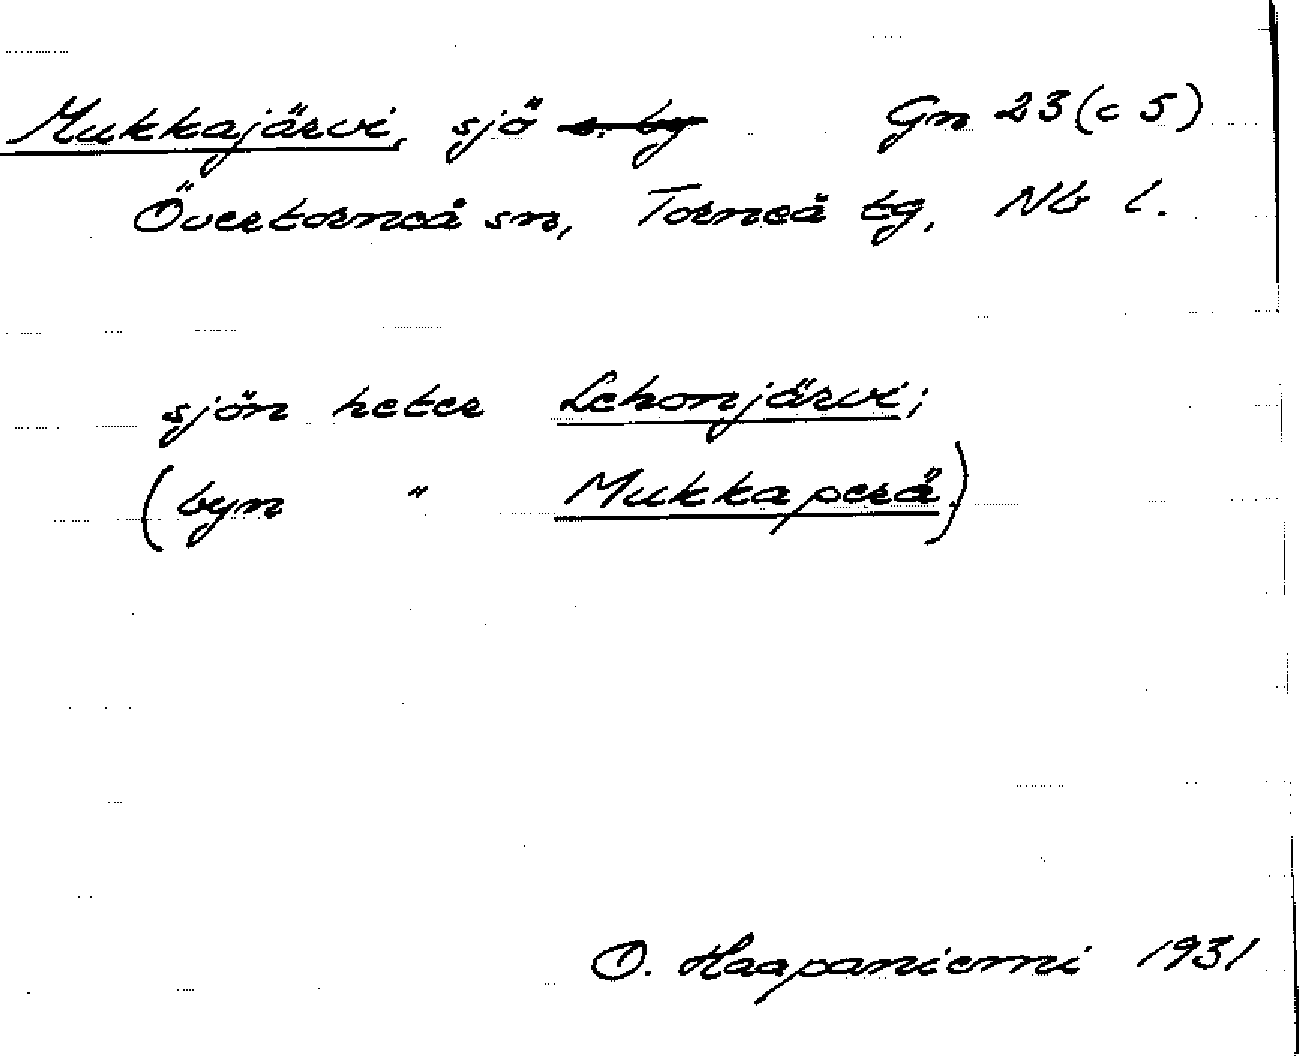 Mukkajärvi, sjö o. by Gn 23 (c 5)
Övertorneå sn, Torneå tg, Nb l.
sjön heter Lehonjärvi;
(byn " Mukkaperä)
O. Haapaniemi 1931